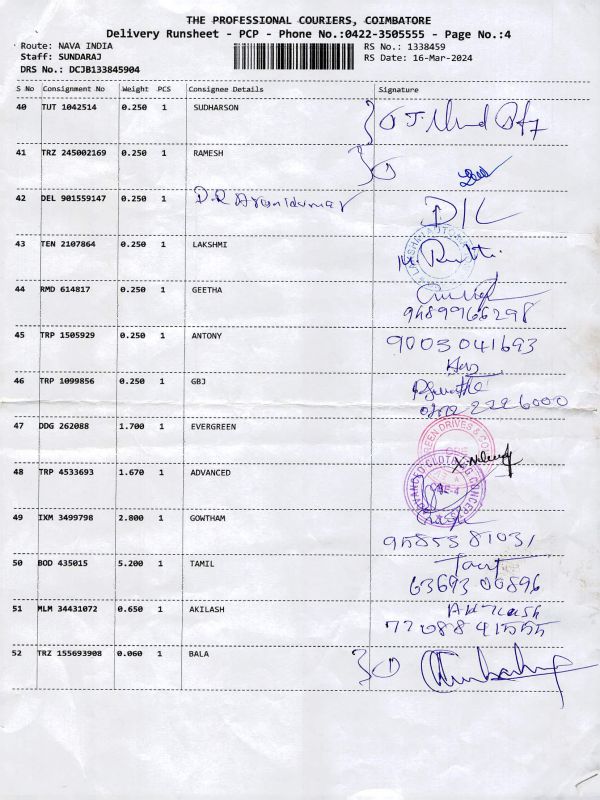 THE PROFESSIONAL COURIERS, COIMBATORE
Delivery Runsheet - PCP - Phone No.:0422-3505555 - Page No.:4
Route: NAVA INDIA
RS No.: 1338459
Staff: SUNDARAJ
RS Date: 16-Mar-2024
DRS No.: DCJB133845904
S No Consignment No Weight PCS Consignee Details Signature
40 TUT 1042514 0.250 1 SUDHARSON
41 TRZ 245002169 0.250 1 RAMESH
42 DEL 901559147 0.250 1
43 TEN 2107864 0.250 1 LAKSHMI
44 RMD 614817 0.250 1 GEETHA
9489966298
45 TRP 1505929 0.250 1 ANTONY 9003041693
46 TRP 1099856 0.250 1 GBJ
0422 2226000
47 DDG 262088 1.700 1 EVERGREEN
48 TRP 4533693 1.670 1 ADVANCED
49 IXM 3499798 2.800 1 GOWTHAM
95855 81031
50 BOD 435015 5.200 1 TAMIL
63693 00896
51 MLM 34431072 0.650 1 AKILASH
77088 41555
52 TRZ 155693908 0.060 1 BALA